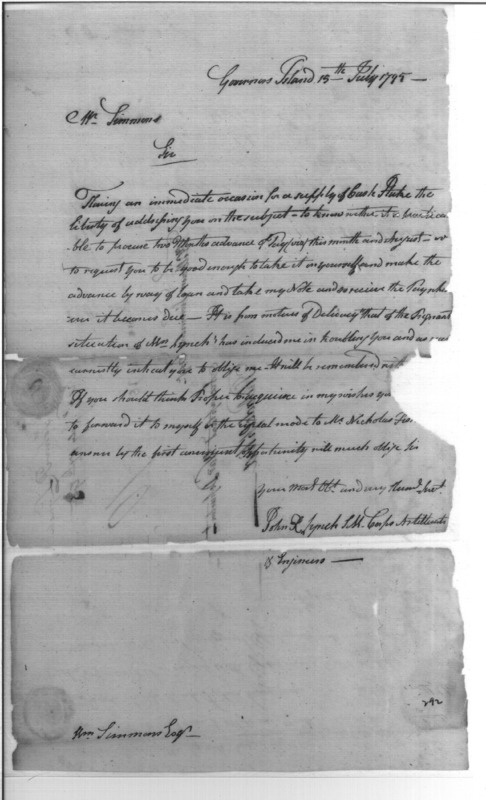 Govenors Island 15th July 1798 —
Mr. Simmons
Sir
Having an immediate occasion for a supply of Cash I take the
liberty of addressing you on the subject – to know wither it is practica
-ble to procure two Months advance of Pay, say this month and August – or
to request you to be good enough to take it on yourself and make the
advance by way of loan and take my Note and so receive the Pay when
ever it becomes due — It is from motives of Delicacy that of the Pregnant
situation of Mrs. Lynch has induced me in troubling you and as
earnestly intreat you to oblige me – It will be remembered
If you should think Proper to acquiesce in my wishes
to forward it to myself or the usual mode to Mr. Nicholas
answer by the first convenient Opportunity will much oblige Sir
your Most Obt. and very Humb. Servt.
John R Lynch Corps Artillerists
& Engineers —
292
Wm Simmons Esqr.